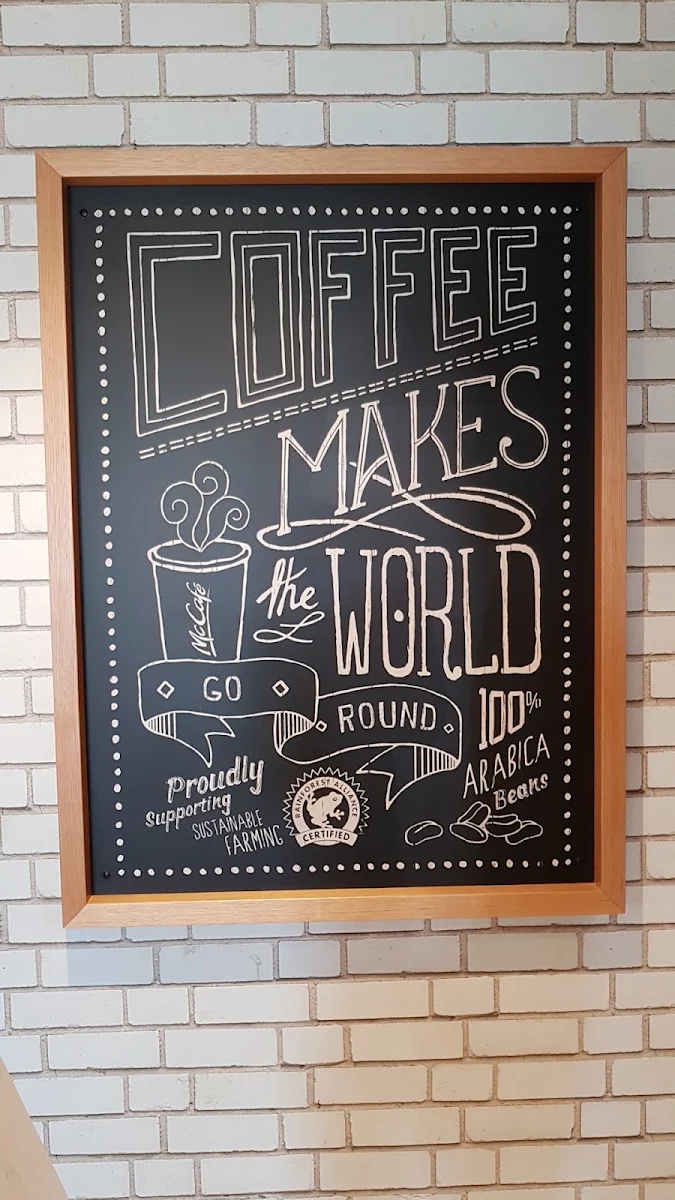 COFFEE
MAKES
the WORLD
McCafé
GO
ROUND
100%
ARABICA
Beans
Proudly
Supporting
SUSTAINABLE
FARMING
RAINFOREST ALLIANCE
CERTIFIED